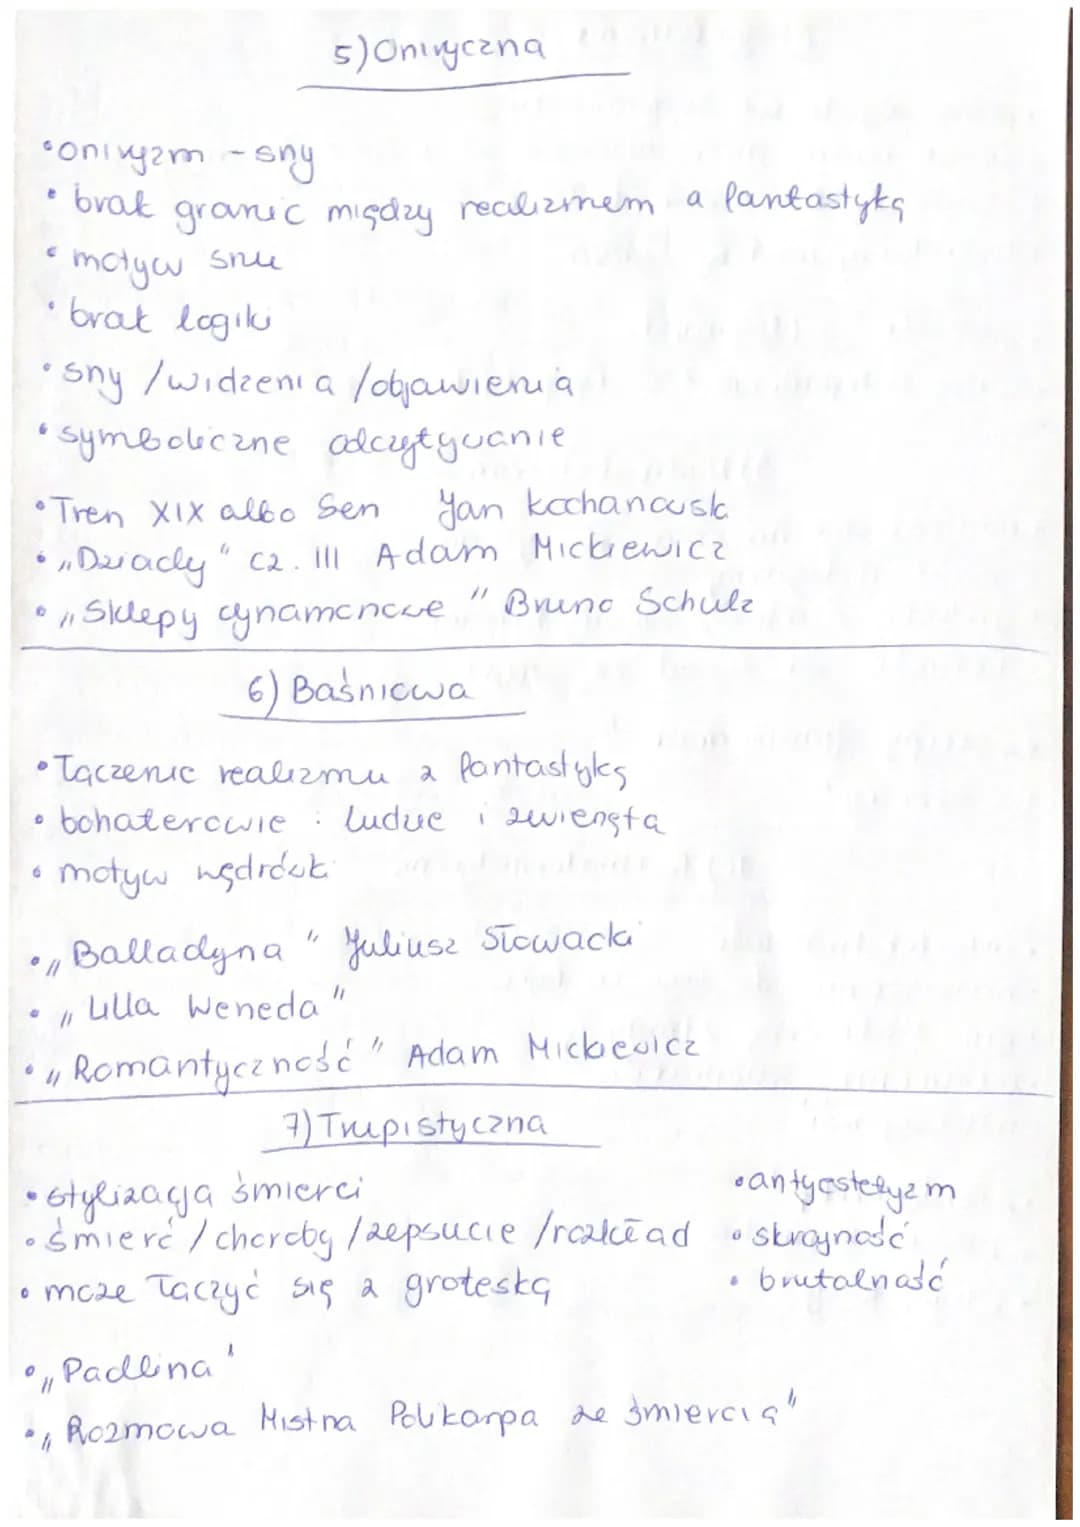 5) Oniryczna
• oniryzm - sny
• brak granic między realizmem a fantastyką
• motyw snu
• brak logiki
• sny / widzenia / objawienia
• symboliczne odczytywanie
• Tren XIX albo Sen Jan Kochanowsk
• „Dziady" cz. III Adam Mickiewicz
• „Sklepy cynamonowe" Bruno Schulz
6) Baśniowa
• Łączenie realizmu z fantastyką
• bohaterowie : ludzie i zwierzęta
• motyw wędrówki
• „Balladyna" Juliusz Słowacki
• „Lilla Weneda"
• „Romantyczność" Adam Mickiewicz
7) Trupistyczna
• stylizacja śmierci
• śmierć / choroby / zepsucie / rozkład
• może łączyć się z groteską
• antyestetyzm
• skrajność
• brutalność
• „Padlina'
• „Rozmowa Mistrza Polikarpa ze śmiercią"